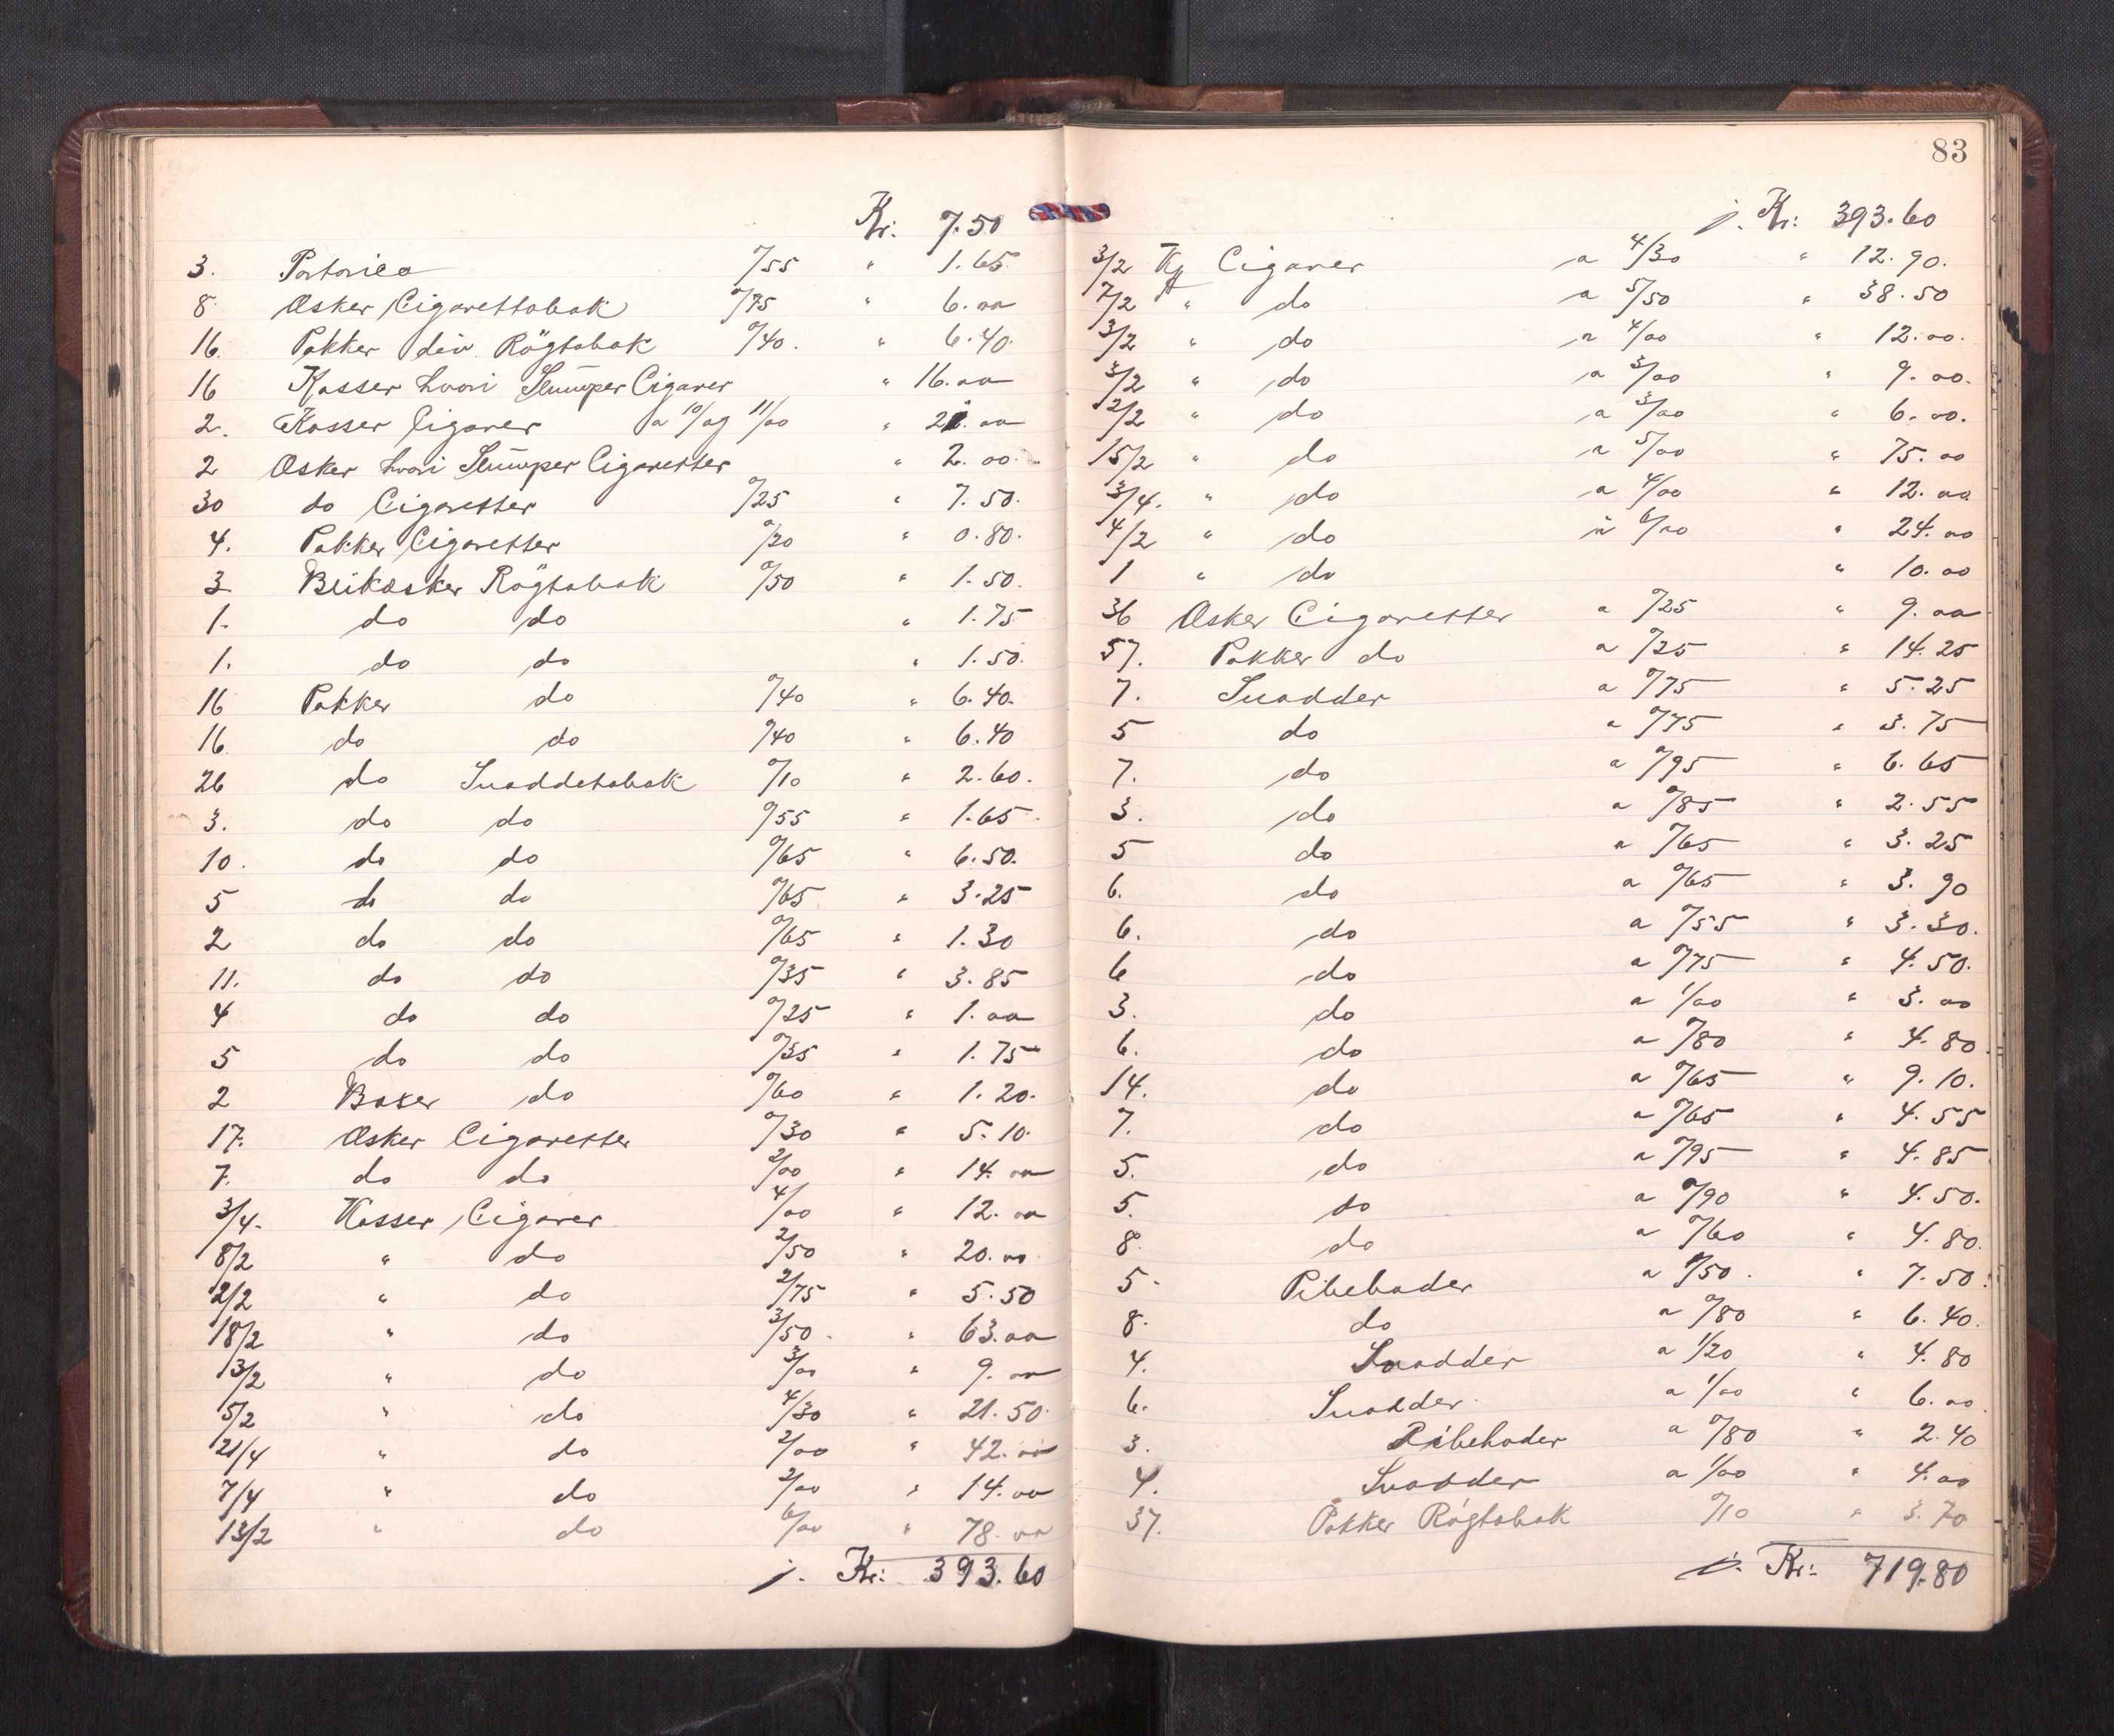 Kr. 7.50
3. Portorico 0/55 " 1.65.
8 Æsker Cigarettobak 0/75 " 6.00
16. Pakker div. Rögtobak 0/40. " 6.40.
16 Kasser hvori Slumper Cigarer " 16.00
2. Kasser Cigarer a 10/ og 11/00 " 21.00
2 Æsker hvori Slumper Cigaretter " 2.00.
30 do Cigaretter 0/25 " 7.50.
4. Pakker Cigaretter 0/20 " 0.80.
3 Blikæsker Rögtobak 0/50 " 1.50.
1. do do " 1.75
1. do do " 1.50.
16 Pakker do 0/40 " 6.40.
16. do do 0/40 " 6.40
26 do Snaddetobak 0/10 " 2.60.
3. do do 0/55 " 1.65.
10. do do 0/65 " 6.50.
5 do do 0/65 " 3.25
2 do do 0/65 " 1.30
11. do do 0/35 " 3.85
4 do do 0/25 " 1.00
5 do do 0/35 " 1.75
2 Boxer do 0/60 " 1.20.
17. Æsker Cigaretter 0/30 " 5.10.
7. do do 2/00 " 14.00
3/4. Kasser Cigarer 4/00 " 12.00
8/2 " do 2/50 " 20.00
2/2 " do 2/75 " 5.50
18/2 " do 3/50. " 63.00
3/2 " do 3/00 " 9.00
5/2 " do 4/30 " 21.50.
21/4 " do 2/00 " 42.00
7/4 " do 2/00 " 14.00
13/2 " do 6/00 " 78.00
j. Kr: 393.60
83
j. Kr: 393.60
3/2 Ks Cigarer a 4/30 " 12.90.
7/2 " do a 5/50 " 38.50
3/2 " do a 4/00 " 12.00.
3/2 " do a 3/00 " 9.00.
2/2 " do a 3/00 " 6.00.
15/2 " do a 5/00 " 75.00
3/4. " do a 4/00 " 12.00
4/2 " do a 6/00 " 24.00
1 " do " 10.00
36 Æsker Cigaretter a 0/25 " 9.00
57. Pakker do a 0/25 " 14.25
7. Snadder a 0/75 " 5.25
5 do a 0/75 " 3.75
7. do a 0/95 " 6.65
3. do a 0/85 " 2.55
5 do a 0/65 " 3.25
6. do a 0/65 " 3.90
6. do a 0/55 " 3.30.
6 do a 0/75 " 4.50.
3. do a 1/00 " 3.00
6. do a 0/80 " 4.80.
14. do a 0/65 " 9.10.
7. do a 0/65 " 4.55
5. do a 0/95 " 4.85
5. do a 0/90 " 4.50.
8. do a 0/60 " 4.80.
5. Pibehoder a 1/50. " 7.50.
8. do a 0/80 " 6.40.
4. Snadder a 1/20 " 4.80
6. Snadder. a 1/00 " 6.00
3. Pibehoder a 0/80 " 2.40
4. Snadder a 1/00 " 4.00
37. Pakker Rögtobak 0/10 " 3.70
j. Kr: 719.80